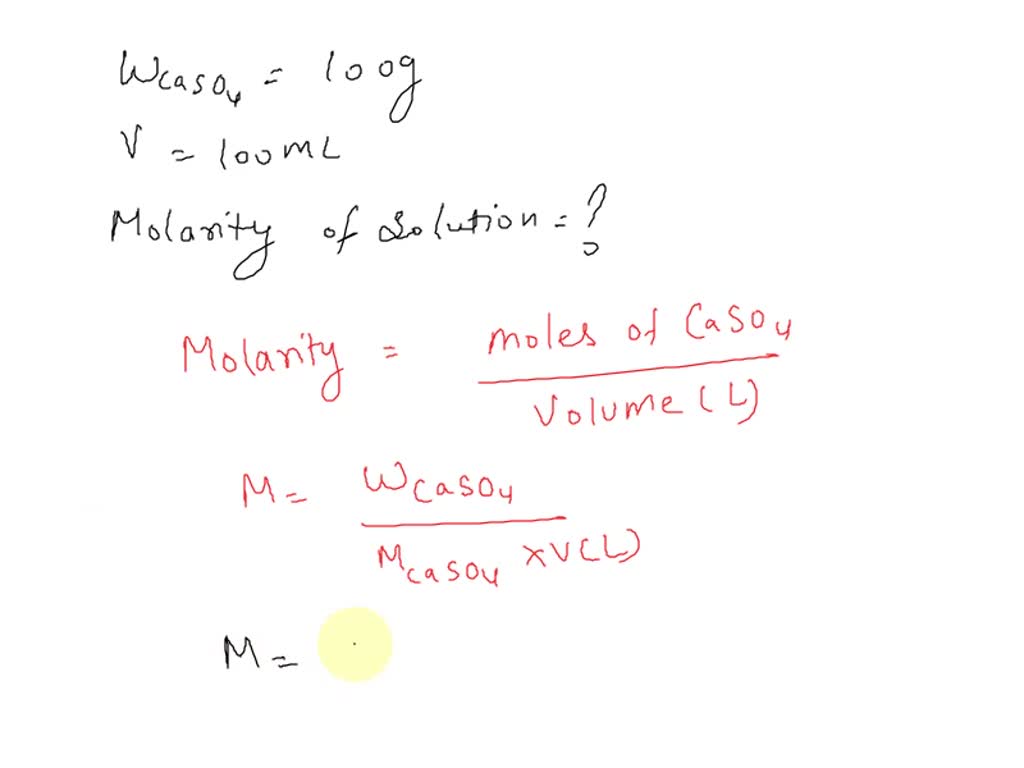 WCaSO4 = 100g
V = 100mL
Molarity of Solution = ?
Molarity = moles of CaSO4
Volume (L)
M = WCaSO4
MCaSO4 XV(L)
M =